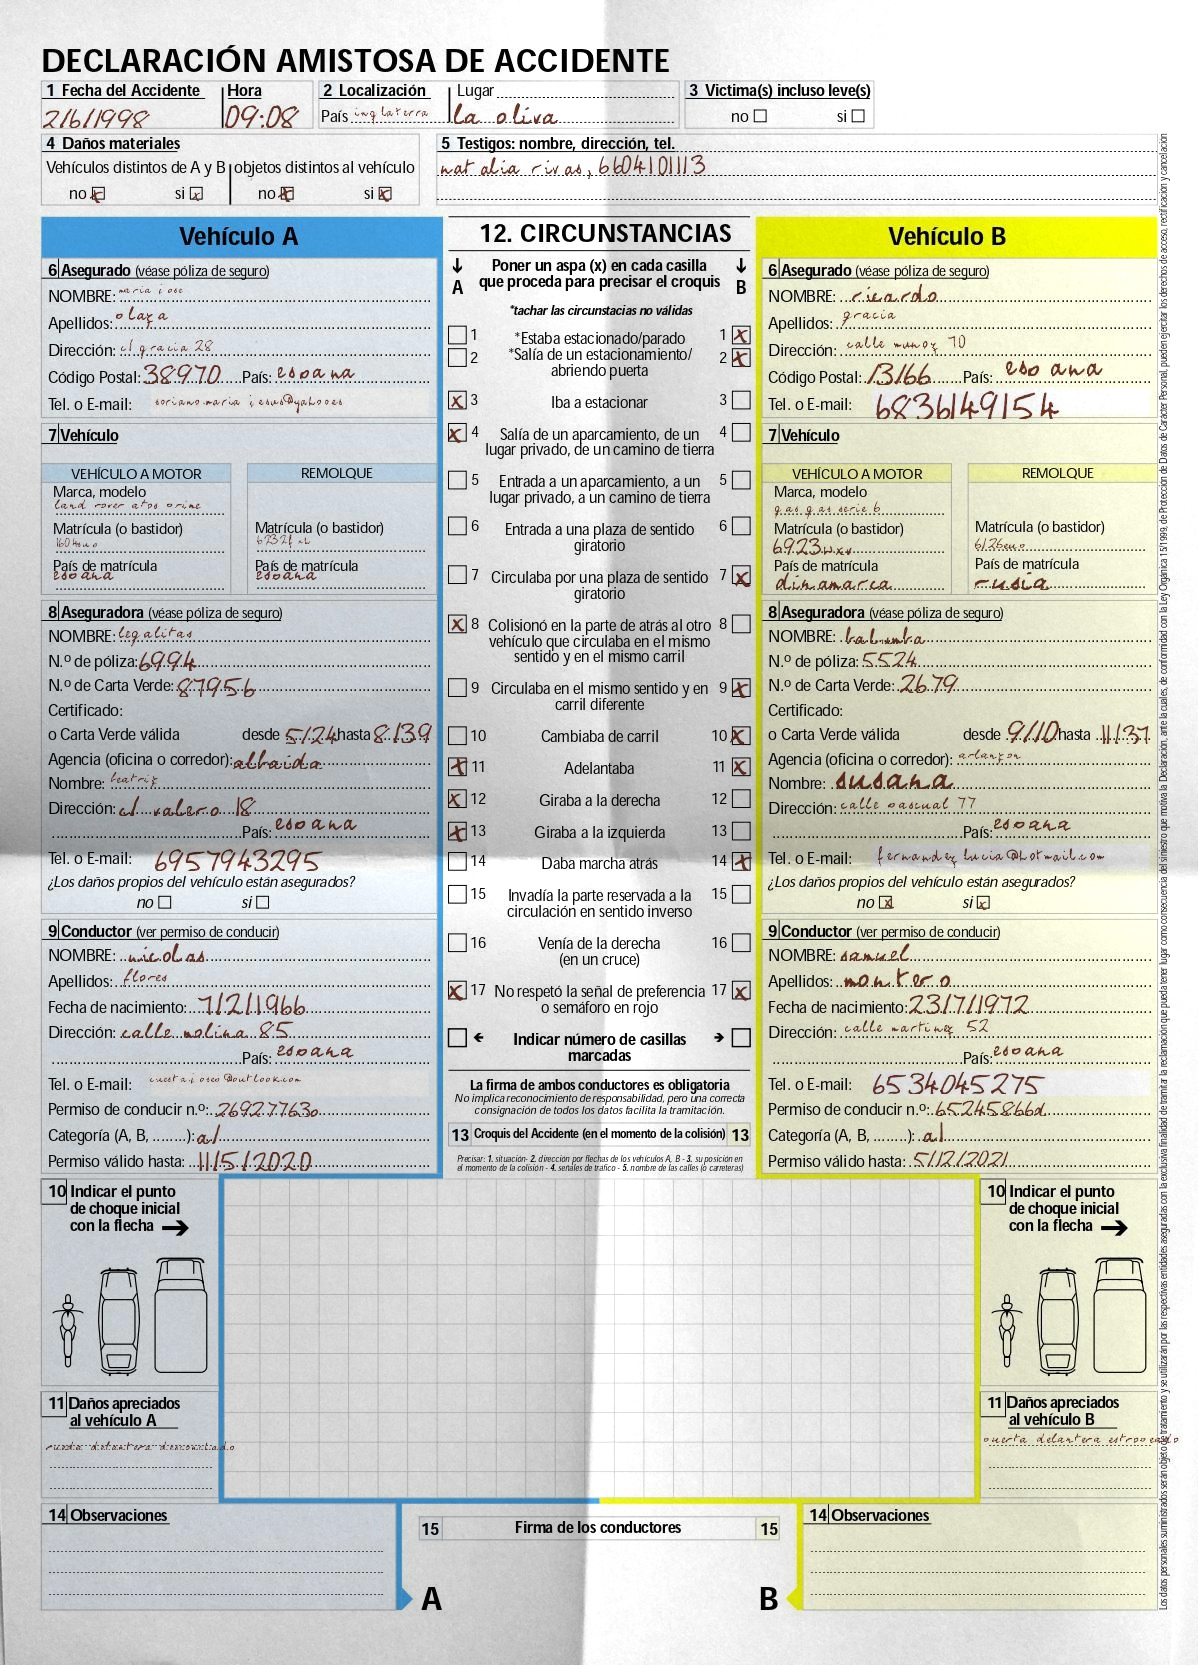 DECLARACIÓN AMISTOSA DE ACCIDENTE
1 Fecha del Accidente Hora 2 Localización Lugar 3 Victima(s) incluso leve(s)
2/6/1998 09:08 País inglaterra la oliva no si
4 Daños materiales
Vehículos distintos de A y B objetos distintos al vehículo
no x si x no x si x
5 Testigos: nombre, dirección, tel.
natalia rivas, 6604101113
Vehículo A
6 Asegurado (véase póliza de seguro)
NOMBRE: maria jose
Apellidos: olaya
Dirección: c/ gracia 28
Código Postal: 38970 País: espana
Tel. o E-mail: sorianomaria jesus@yahooes
7 Vehículo
VEHÍCULO A MOTOR REMOLQUE
Marca, modelo
land rover atos prime
Matrícula (o bastidor) Matrícula (o bastidor)
País de matrícula País de matrícula
espana espana
8 Aseguradora (véase póliza de seguro)
NOMBRE: legalitas
N.º de póliza: 6994
N.º de Carta Verde: 87956
Certificado:
o Carta Verde válida desde 5/24 hasta 8/39
Agencia (oficina o corredor): albaida
Nombre: beatriz
Dirección: c/ valero 18
País: espana
Tel. o E-mail: 6957943295
¿Los daños propios del vehículo están asegurados?
no si
9 Conductor (ver permiso de conducir)
NOMBRE: nicolas
Apellidos: flores
Fecha de nacimiento: 7/2/1966
Dirección: calle molina 85
País: espana
Tel. o E-mail: cuestajoseo@outlook.com
Permiso de conducir n.º: 26927763o
Categoría (A, B, ........): a1
Permiso válido hasta: 11/5/2020
10 Indicar el punto
de choque inicial
con la flecha
11 Daños apreciados
al vehículo A
rueda delantera desmontado
14 Observaciones
12. CIRCUNSTANCIAS
A Poner un aspa (x) en cada casilla B
que proceda para precisar el croquis
*tachar las circunstacias no válidas
1 *Estaba estacionado/parado 1 x
2 *Salía de un estacionamiento/ 2 x
abriendo puerta
x 3 Iba a estacionar 3
x 4 Salía de un aparcamiento, de un 4
lugar privado, de un camino de tierra
5 Entrada a un aparcamiento, a un 5
lugar privado, a un camino de tierra
6 Entrada a una plaza de sentido 6
giratorio
7 Circulaba por una plaza de sentido 7 x
giratorio
x 8 Colisionó en la parte de atrás al otro 8
vehículo que circulaba en el mismo
sentido y en el mismo carril
9 Circulaba en el mismo sentido y en 9 x
carril diferente
10 Cambiaba de carril 10 x
x 11 Adelantaba 11 x
x 12 Giraba a la derecha 12
x 13 Giraba a la izquierda 13
14 Daba marcha atrás 14 x
15 Invadía la parte reservada a la 15
circulación en sentido inverso
16 Venía de la derecha 16
(en un cruce)
x 17 No respetó la señal de preferencia 17 x
o semáforo en rojo
Indicar número de casillas
marcadas
La firma de ambos conductores es obligatoria
No implica reconocimiento de responsabilidad, pero una correcta
consignación de todos los datos facilita la tramitación.
13 Croquis del Accidente (en el momento de la colisión) 13
Precisar: 1. situación- 2. dirección por flechas de los vehículos A, B - 3. su posición en
el momento de la colisión - 4. señales de tráfico - 5. nombre de las calles (o carreteras)
15 Firma de los conductores 15
A B
Vehículo B
6 Asegurado (véase póliza de seguro)
NOMBRE: ricardo
Apellidos: gracia
Dirección: calle munoz 70
Código Postal: 13166 País: espana
Tel. o E-mail: 6836149154
7 Vehículo
VEHÍCULO A MOTOR REMOLQUE
Marca, modelo
gas gas serie 6
Matrícula (o bastidor) Matrícula (o bastidor)
País de matrícula País de matrícula
dinamarca rusia
8 Aseguradora (véase póliza de seguro)
NOMBRE: balumba
N.º de póliza: 5524
N.º de Carta Verde: 2679
Certificado:
o Carta Verde válida desde 9/10 hasta 11/37
Agencia (oficina o corredor): arlanzon
Nombre: susana
Dirección: calle pascual 77
País: espana
Tel. o E-mail: fernandez lucia@hotmail.com
¿Los daños propios del vehículo están asegurados?
no x si x
9 Conductor (ver permiso de conducir)
NOMBRE: samuel
Apellidos: montero
Fecha de nacimiento: 23/7/1972
Dirección: calle martinez 52
País: espana
Tel. o E-mail: 6534045275
Permiso de conducir n.º: 65245866d
Categoría (A, B, ........): a1
Permiso válido hasta: 5/12/2021
10 Indicar el punto
de choque inicial
con la flecha
11 Daños apreciados
al vehículo B
puerta delantera estropeado
14 Observaciones
Los datos personales suministrados serán objeto de tratamiento y se utilizarán por las respectivas entidades aseguradas con la exclusiva finalidad de tramitar la reclamación que pueda tener lugar como consecuencia del siniestro que motiva la Declaración, ante la cuales, de conformidad con la Ley Orgánica 15/1999, de Protección de Datos de Carácter Personal, pueden ejercitar los derechos de acceso, rectificación y cancelación